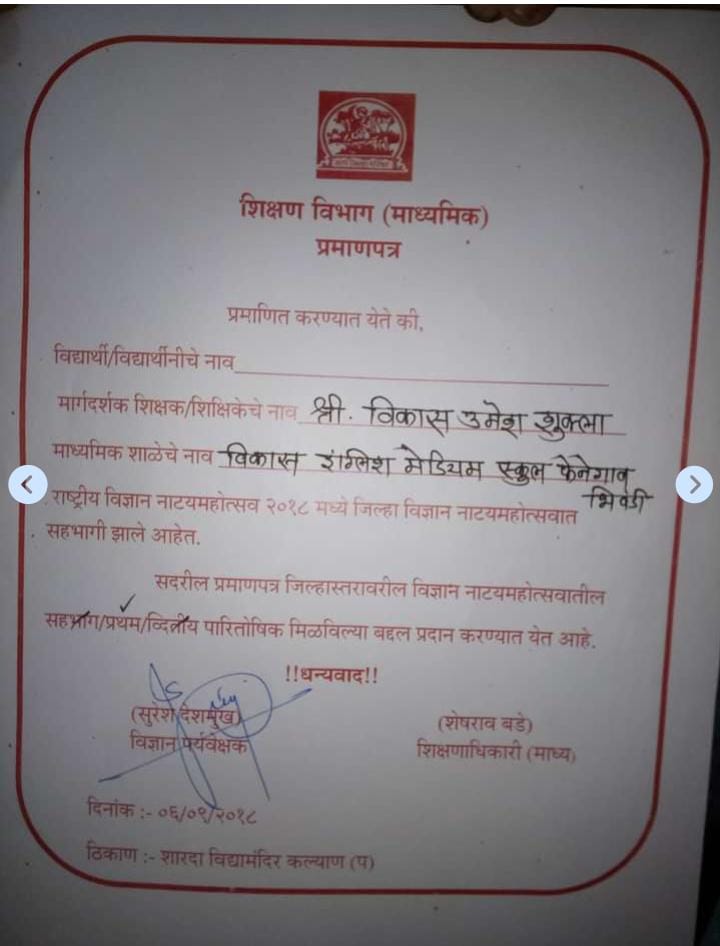 शिक्षण विभाग (माध्यमिक)
प्रमाणपत्र
प्रमाणित करण्यात येते की,
विद्यार्थी/विद्यार्थीनीचे नाव
मार्गदर्शक शिक्षक/शिक्षिकेचे नाव श्री. विकास उमेश शुक्ला
माध्यमिक शाळेचे नाव विकास इंग्लिश मेडियम स्कुल फेनेगाव
भिवंडी
राष्ट्रीय विज्ञान नाटयमहोत्सव २०१८ मध्ये जिल्हा विज्ञान नाटयमहोत्सवात
सहभागी झाले आहेत.
सदरील प्रमाणपत्र जिल्हास्तरावरील विज्ञान नाटयमहोत्सवातील
सहभाग/प्रथम/व्दितीय पारितोषिक मिळविल्या बद्दल प्रदान करण्यात येत आहे.
!!धन्यवाद!!
(सुरेश देशमुख)
विज्ञान पर्यवेक्षक
(शेषराव बडे)
शिक्षणाधिकारी (माध्य)
दिनांक :- ०६/०९/२०१८
ठिकाण :- शारदा विद्यामंदिर कल्याण (प)